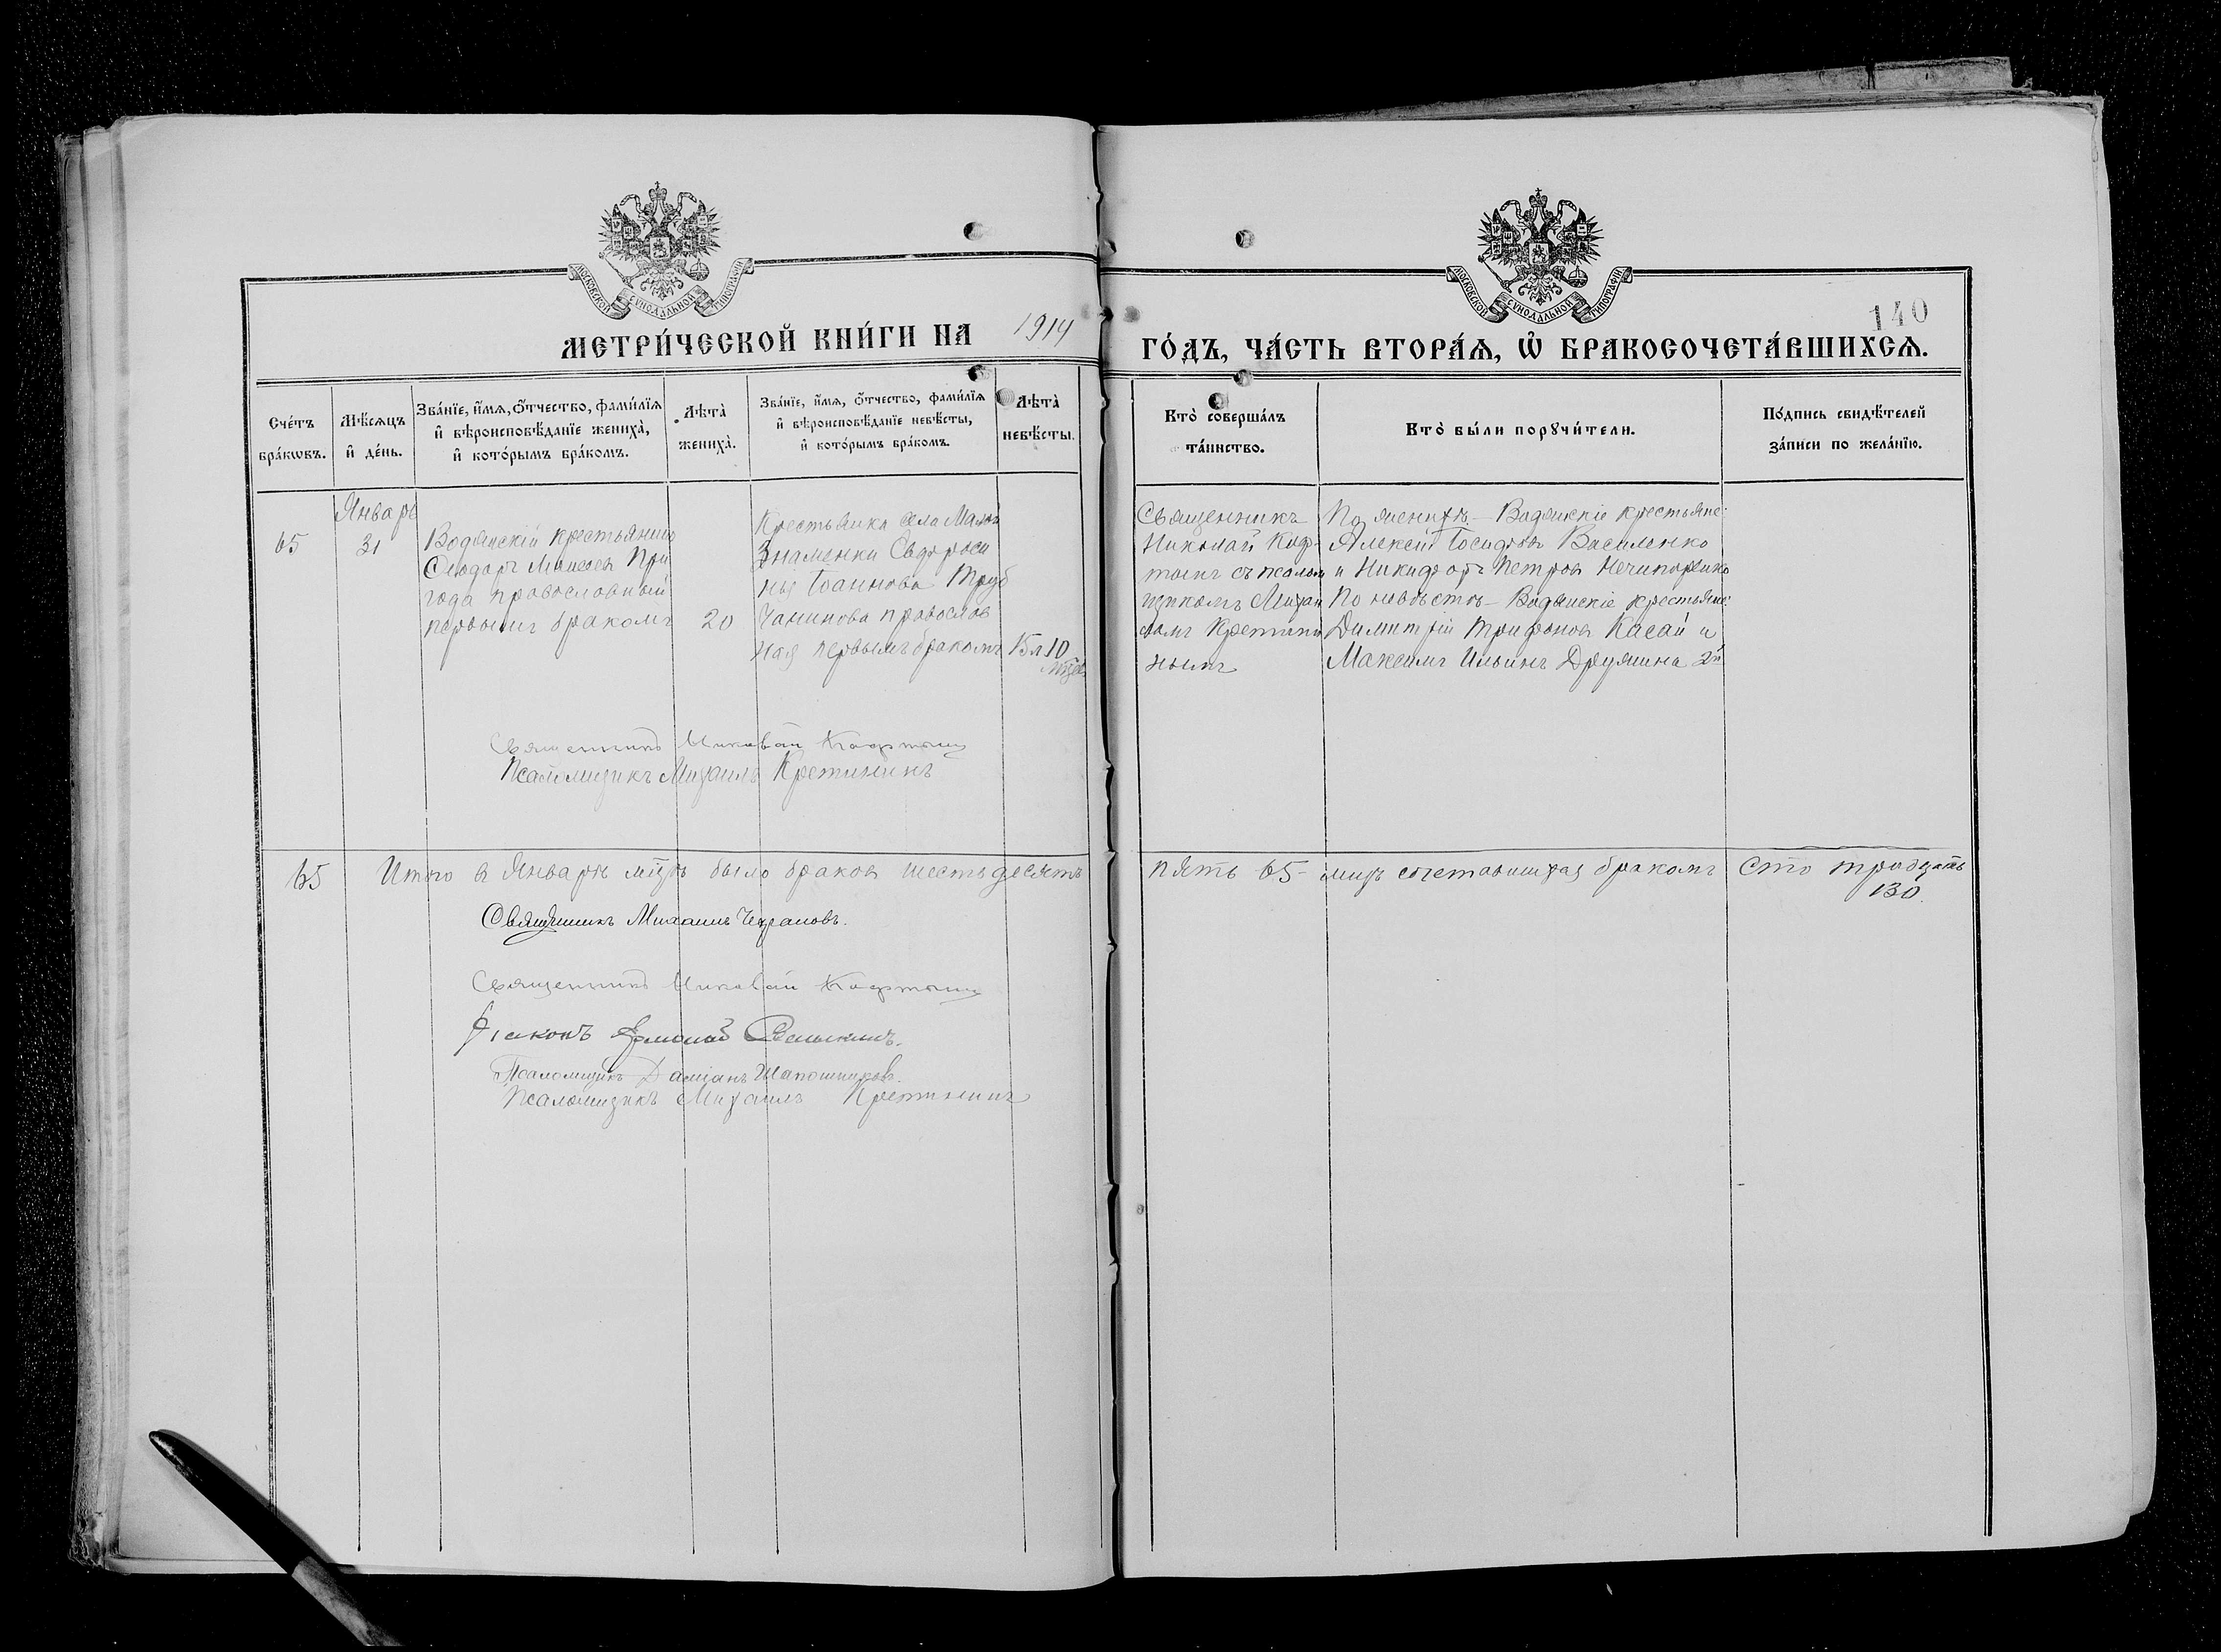 МОСКОВСКОЙ СѴНОДАЛЬНОЙ ТИПОГРАФІИ
МОСКОВСКОЙ СѴНОДАЛЬНОЙ ТИПОГРАФІИ
140
МЕТРИ́ЧЕСКОЙ КНИ́ГИ НА 1914
ГО́ДЪ, ЧА́СТЬ ВТОРА́Ѧ, Ѡ҆ БРАКОСОЧЕТА́ВШИХСѦ.
Сче́тъ бра́кѡвъ.
Мѣ́сѧцъ и҆ де́нь.
Зва́нїе, и҆́мѧ, ѻ҆́тчество, фами́лїѧ и҆ вѣроисповѣ́данїе жениха̀, и҆ кото́рымъ бра́комъ.
Лѣта̀ жениха̀.
Зва́нїе, и҆́мѧ, ѻ҆́тчество, фами́лїѧ и҆ вѣроисповѣ́данїе невѣ́сты, и҆ кото́рымъ бра́комъ.
Лѣта̀ невѣ́сты.
Кто̀ соверша́лъ та́инство.
Кто̀ бы́ли порꙋчи́тели.
По́дпись свидѣ́телей за́писи по жела́нїю.
65
Январь
31
Водянскій крестьянинъ
Ѳеодоръ Моисеевъ При
года православный
первымъ бракомъ
20
Крестьянка села Малой
Знаменки Евфроси
нія Іоаннова Труб
чанинова православ
ная первымъ бракомъ
15 л 10
мѣсяц
Священникъ
Николай Каф
тынъ съ псалом
щикомъ Михаи
ломъ Кретини
нымъ
По женихѣ – Водянскіе крестьяне:
Алексѣй Іосифовъ Василенко
и Никифоръ Петровъ Нечипоренко
По невѣстѣ – Водянскіе крестьяне:
Димитрій Трифоновъ Касай и
Максимъ Ильинъ Дружина 2й
Священникъ Николай Кафтынъ
Псаломщикъ Михаилъ Кретининъ
65 Итого въ Январѣ мцѣ было браковъ шестьдесятъ
пять 65 – лицъ сочетавшихся бракомъ сто тридцать
130.
Священникъ Михаилъ
Священникъ Николай Кафтынъ
Діаконъ
Псаломщикъ Даміанъ Шапошниковъ.
Псаломщикъ Михаилъ Кретининъ